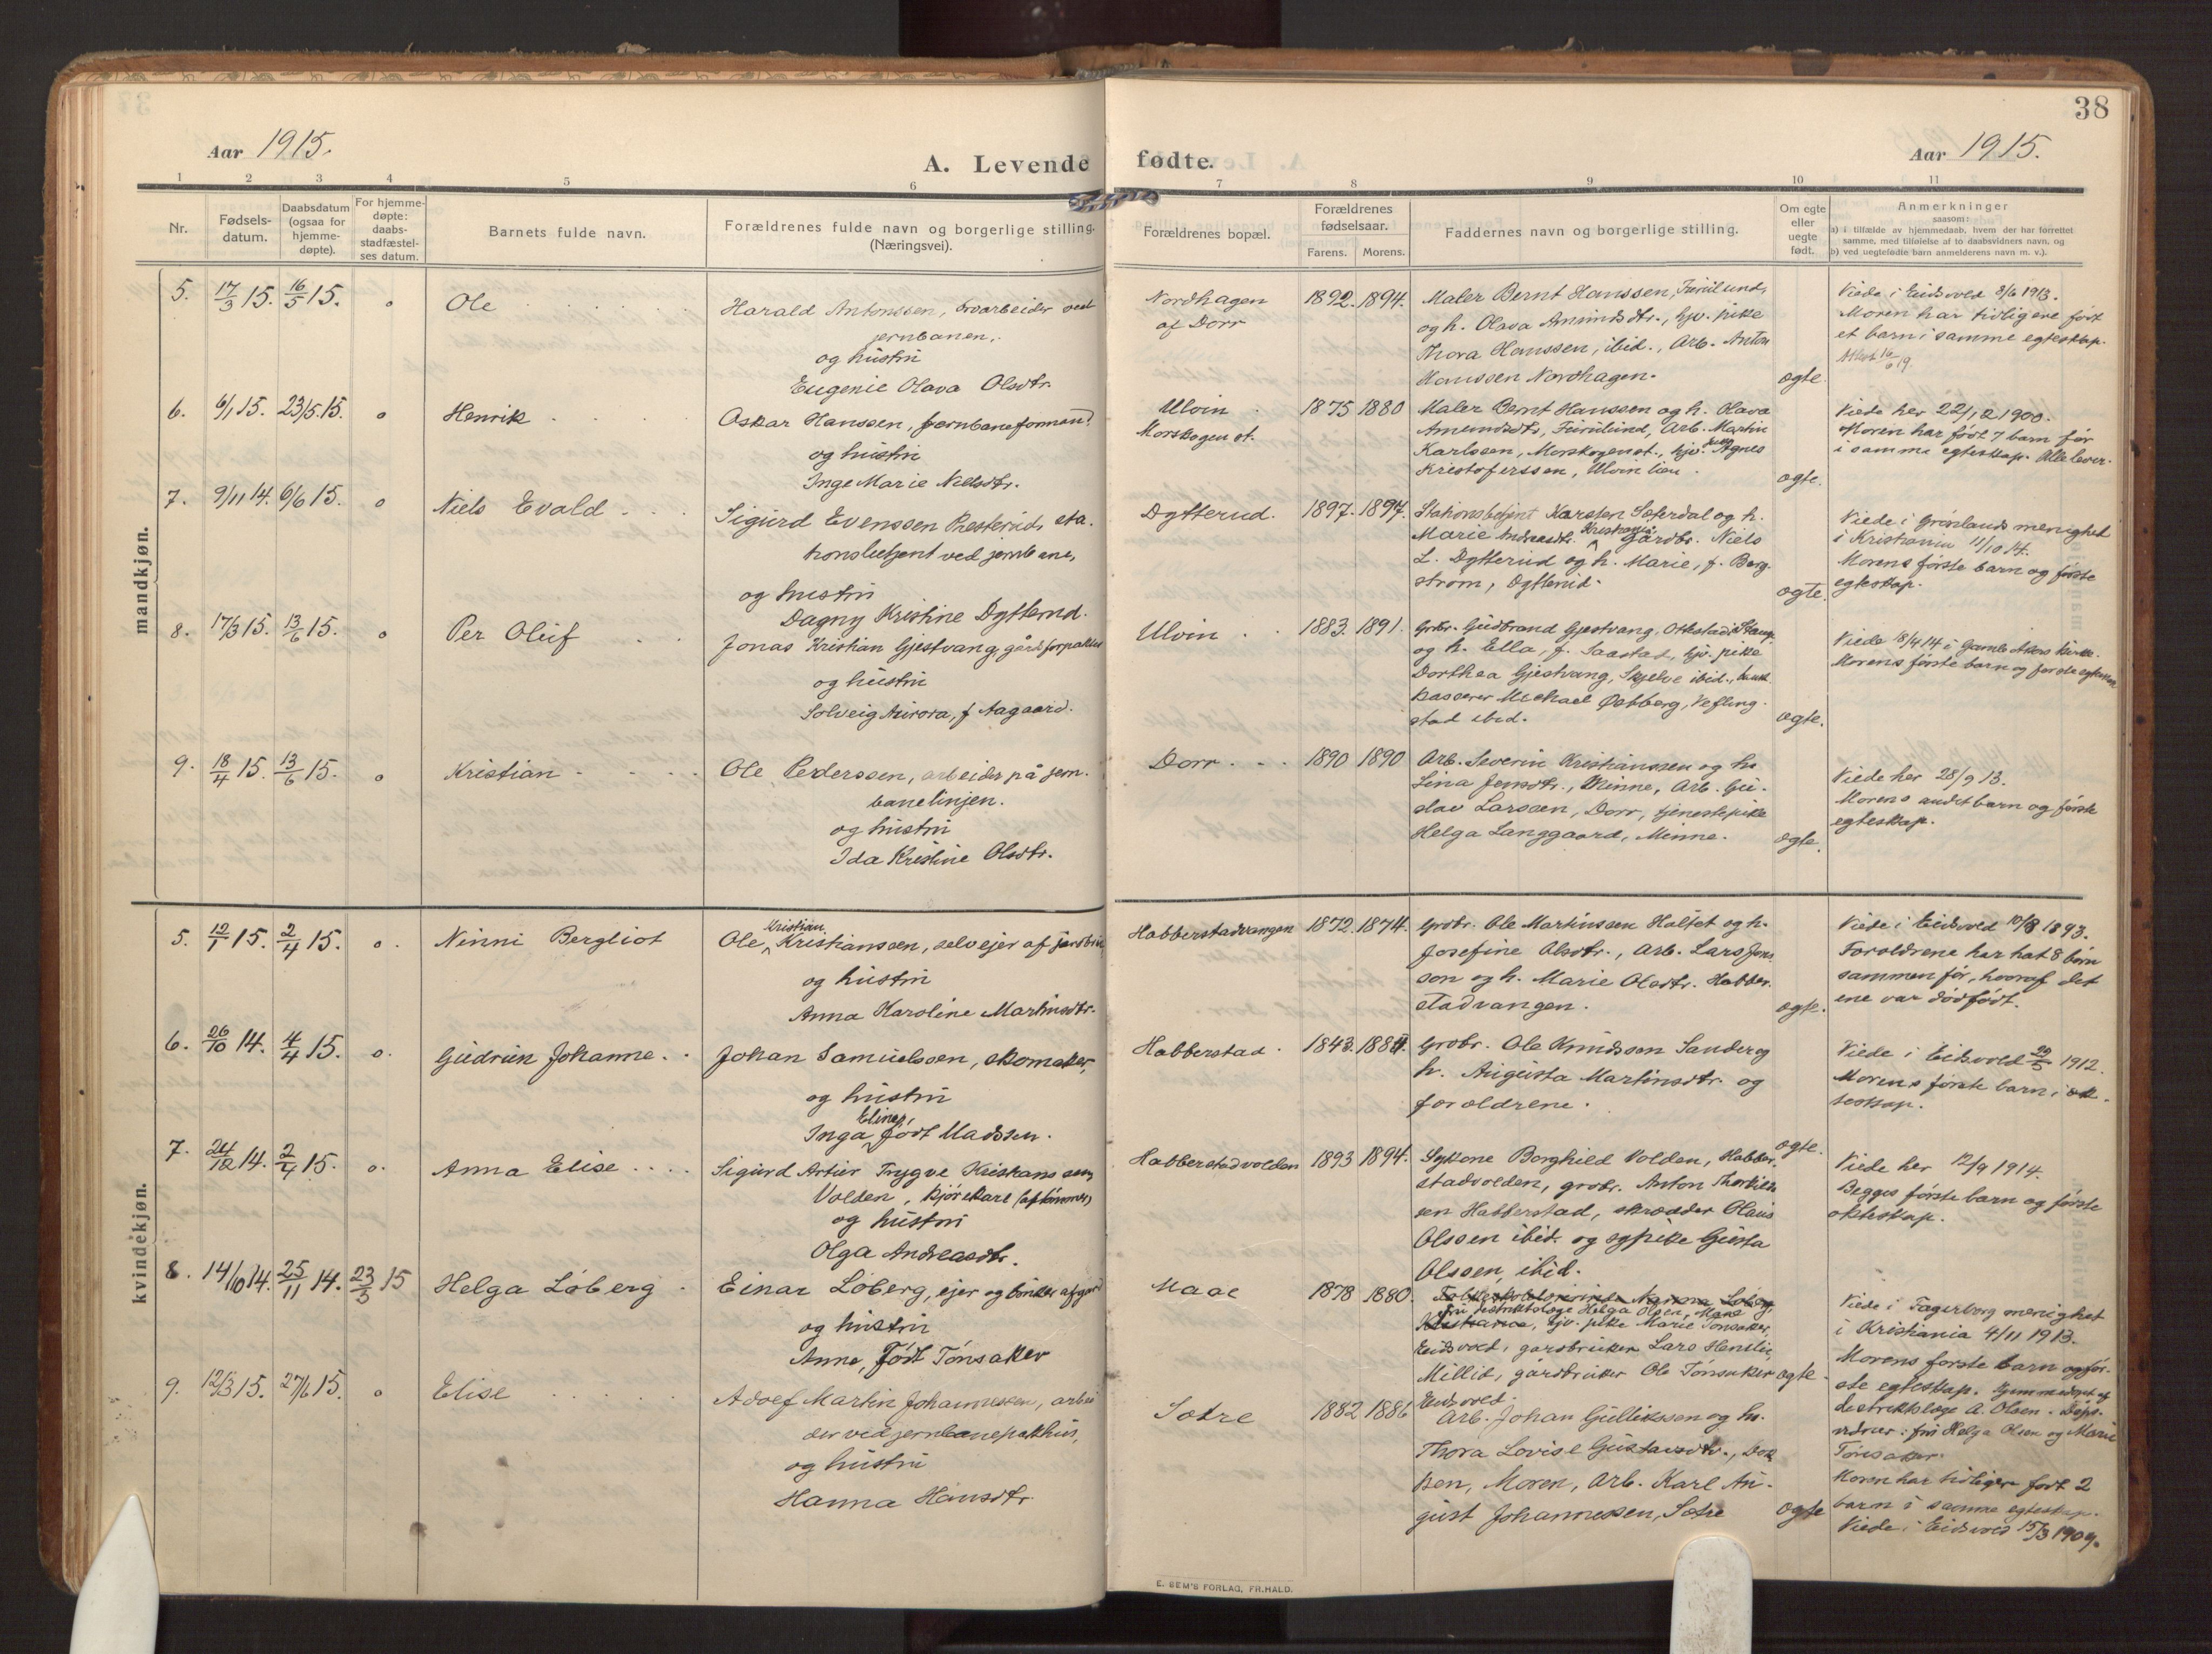 38
Aar 1915.
A. Levende fødte.
Aar 1915.
1 2 3 4 5 6 7 8 9 10 11
Nr.
Fødsels-
datum.
Daabsdatum
(ogsaa for
hjemme-
døpte).
For hjemme-
døpte:
daabs-
stadfæstel-
ses datum.
Barnets fulde navn.
Forældrenes fulde navn og borgerlige stilling.
(Næringsvei).
Forældrenes bopæl.
Forældrenes
fødselsaar.
Farens. Morens.
Faddernes navn og borgerlige stilling.
Om egte
eller
uegte
født.
Anmerkninger
saasom:
a) i tilfælde av hjemmedaab, hvem der har forrettet
samme, med tilføielse af to daabsvidners navn, og
b) ved uegtefødte barn anmelderens navn m. v.).
mandkjøn.
5. 17/3 15. 16/5 15. o Ole
Harald Antonssen, arbeider ved
jernbanen,
og hustru
Eugenie Olava Olsdtr.
Nordhagen
af Dorr
1892. 1894.
Maler Bernt Hanssen, Feirilund,
og h. Olava Amundsdtr., hjv. pike
Thora Hanssen, ibid., Arb. Anton
Hanssen Nordhagen.
ægte.
Viede i Eidsvold 8/6 1913.
Moren har tidligere født
et barn i samme egteskap.
Attest 16/6 19.
6. 6/1 15. 23/5 15. o Henrik
Oskar Hanssen, jernbaneformand
og hustru
Inge Marie Nielsdtr.
Ulvin
Morskogen st.
1875 1880
Maler Bernt Hanssen og h. Olava
Amundsdtr, Feirilund, Arb. Martin
Karlssen, Morskogen st., hjv. pike Agnes
Kristoferssen, Ulvin lien.
ægte.
Viede her 22/12 1900.
Moren har født 7 barn før
i samme egteskap. Alle lever.
7. 9/11 14. 6/6 15. o Niels Evald
Sigurd Evenssen Presterud, sta-
tionsbetjent ved jernbane,
og hustru
Dagny Kristine Dytterud.
Dytterud.
1897. 1897.
Stationsbetjent Karsten Sæterdal og h.
Marie Andreasdtr. Kristiania, Gårdbr. Niels
L. Dytterud og h. Marie, f. Berg-
strøm, Dytterud.
ægte.
Viede i Grønlands menighet
i Kristiania 11/10 14.
Morens første barn og første
egteskap.
8. 17/3 15. 13/6 15. o Per Oluf
Jonas Kristian Gjestvang, gårdforpakter
og hustru
Solveig Aurora, f. Aagaard.
Ulvin
1883. 1891.
Grbr. Gudbrand Gjestvang, Otkstad i Stange
og h. Ella, f. Saastad, hjv. pike
Dorthea Gjestvang, Skjelve ibid., bank
kasserer Michael Østberg, Vefling-
stad ibid.
ægte.
Viede 18/4 14 i Gamle Akers kirke.
Morens første barn og første egteskap.
9. 18/4 15. 13/6 15. o Kristian
Ole Pederssen, arbeider på jern-
banelinjen.
og hustru
Ida Kristine Olsdtr.
Dorr
1890 1890
Arb. Severin Kristianssen og h.
Lina Jensdtr., Minne, Arb. Gu-
stav Larssen, Dorr, tjenestepike
Helga Langgaard, Minne.
ægte.
Viede her 28/9 13.
Morens andet barn og første
egteskap.
kvindekjøn.
5. 12/1 15. 2/4 15. o. Ninni Bergliot
Ole Kristian Kristianssen, selveier af jordbruk
og hustru
Anna Karoline Martinsdtr.
Habberstadvangen
1872. 1874.
Grbr. Ole Martinussen Holtet og h.
Josefine Olsdtr., Arb. Lars Jons-
son og h. Marie Olsdtr. Habber-
stadvangen.
ægte.
Viede i Eidsvold 10/8 1893.
Foreldrene har hat 8 børn
sammen før, hvoraf det
ene var dødfødt.
6. 26/10 14. 4/4 15. o. Gudrun Johanne.
Johan Samuelssen, skomaker,
og hustru
Inga Elines, født Madssen.
Habberstad
1843. 1884
Grbr. Ole Knudssen Sander og
h. Augusta Martinsdtr. og
forældrene.
ægte.
Viede i Eidsvold 20/5 1912.
Morens første barn i æk-
teskap.
7. 24/12 14. 2/4 15. o. Anna Elise
Sigurd Artur Trygve Kristianssen
Volden, kjørekarl (af tømmer)
og hustru
Olga Andreasdtr.
Habberstadvolden
1893 1894.
Sykone Borghild Volden, Habber-
stadvolden, grbr. Anton Thorkild-
sen Habberstad, skrædder Olaus
Olssen ibid. og sypike Gusta
Olssen, ibid.
Viede her 12/9 1914.
Begges første barn og første
ekteskap.
8. 14/10 14. 25/11 14. 23/5 15 Helga Løberg
Einar Løberg, ejer og bruker af gård
og hustru
Anne, født Tønsaker
Maae
1878 1880.
fru distriktslæge Helga Olsen, Maae
Kristiania, hjv. pike Marie Tønsaker,
Eidsvold, gårdbruker Lars Henslie,
Millid, gårdbruker Ole Tønsaker
Eidsvold.
ægte.
Viede i Fagerborg menighet
i Kristiania 4/11 1913.
Morens første barn og før-
ste egteskap. Hjemmedøpt af
destriktslæge A. Olsen. Dåps-
vidner: fru Helga Olsen og Marie
Tønsaker.
9. 12/3 15. 27/6 15. o Elise
Adolf Martin Johannessen, arbei-
der ved jernbanepakhus,
og hustru
Hanna Hansdtr.
Sætre
1882 1886
Arb. Johan Gullikssen og h.
Thora Lovise Gustavsdtr., Dok-
ken, Moren, Arb. Karl Au-
gust Johannessen, Sætre
ægte
Moren har tidligere født 2
barn i samme egteskap.
Viede i Eidsvold 15/3 1909.
E. SEM'S FORLAG, FR.HALD.